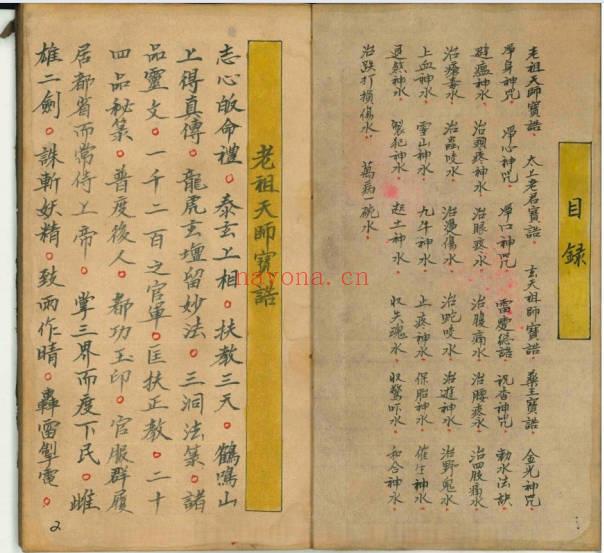 目錄
老祖天師寶誥 太上老君寶誥 玄天祖師寶誥 藥王寶誥 金光神咒
淨身神咒 淨心神咒 淨口神咒 祝香神咒 勅水法訣
避瘟神水 治頭疼神水 治眼疼水 治腹痛水 治腰疼水 治四肢痛水
治瘡毒水 治蟲咬水 治燙傷水 治蛇咬水 治遊神水 治野鬼水
上血神水 雪山神水 九牛神水 止疼神水 保胎神水 催生神水
退煞神水 製犯神水 起土神水 收失魂水 收驚吓水 和合神水
治跌打損傷水 萬病一碗水
老祖天師寶誥
志心皈命禮。泰玄上相。扶教三天。鶴鳴山
上得真傳。龍虎玄壇留妙法。三洞法籙。諸
品靈文。一千二百之官軍。匡扶正教。二十
四品秘籙。普度後人。都功玉印。官服群履
居都省而常侍上帝。掌三界而度下民。雌
雄二劍。誅斬妖精。致雨作晴。轟雷掣電。
2
nayona.cn